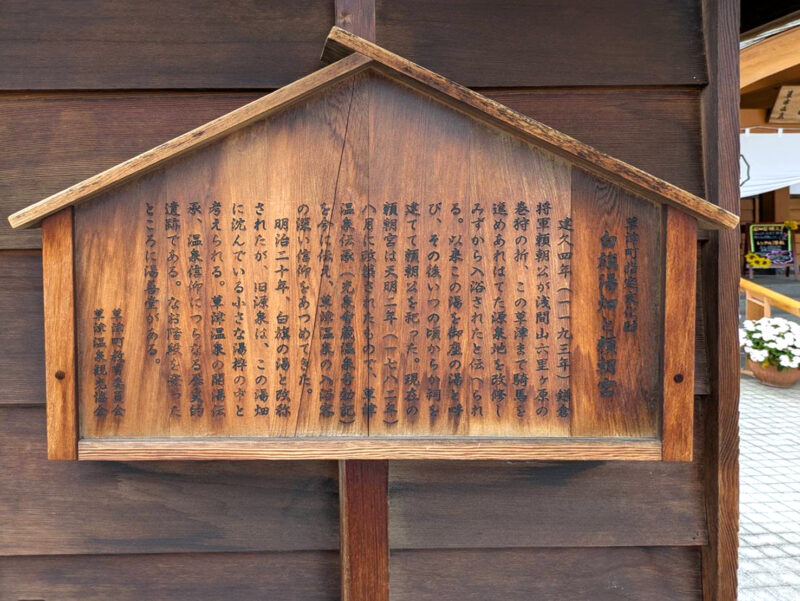 草津町指定文化財
白旗湯畑と頼朝宮
建久四年(一一九三年)鎌倉
将軍頼朝公が浅間山六里ヶ原の
巻狩の折、この草津まで騎馬を
進めあればてた源泉地を改修し
みずから入浴されたと伝へられ
る。以来この湯を御座の湯と呼
び、その後いつの頃からか祠を
建てて頼朝公を祀った。現在の
頼朝宮は天明二年(一七八二年)
八月に改築されたもので、草津
温泉伝承(光泉寺蔵温泉奇効記)
を今に伝え、草津温泉の入浴客
の深い信仰をあつめてきた。
明治二十年、白旗の湯と改称
されたが、旧源泉は、この湯畑
に沈んでいる小さな湯枠の中と
考えられる。草津温泉の開湯伝
承、温泉信仰につらなる歴史的
遺跡である。なお階段を登った
ところに湯善堂がある。
草津町教育委員会
草津温泉観光協会